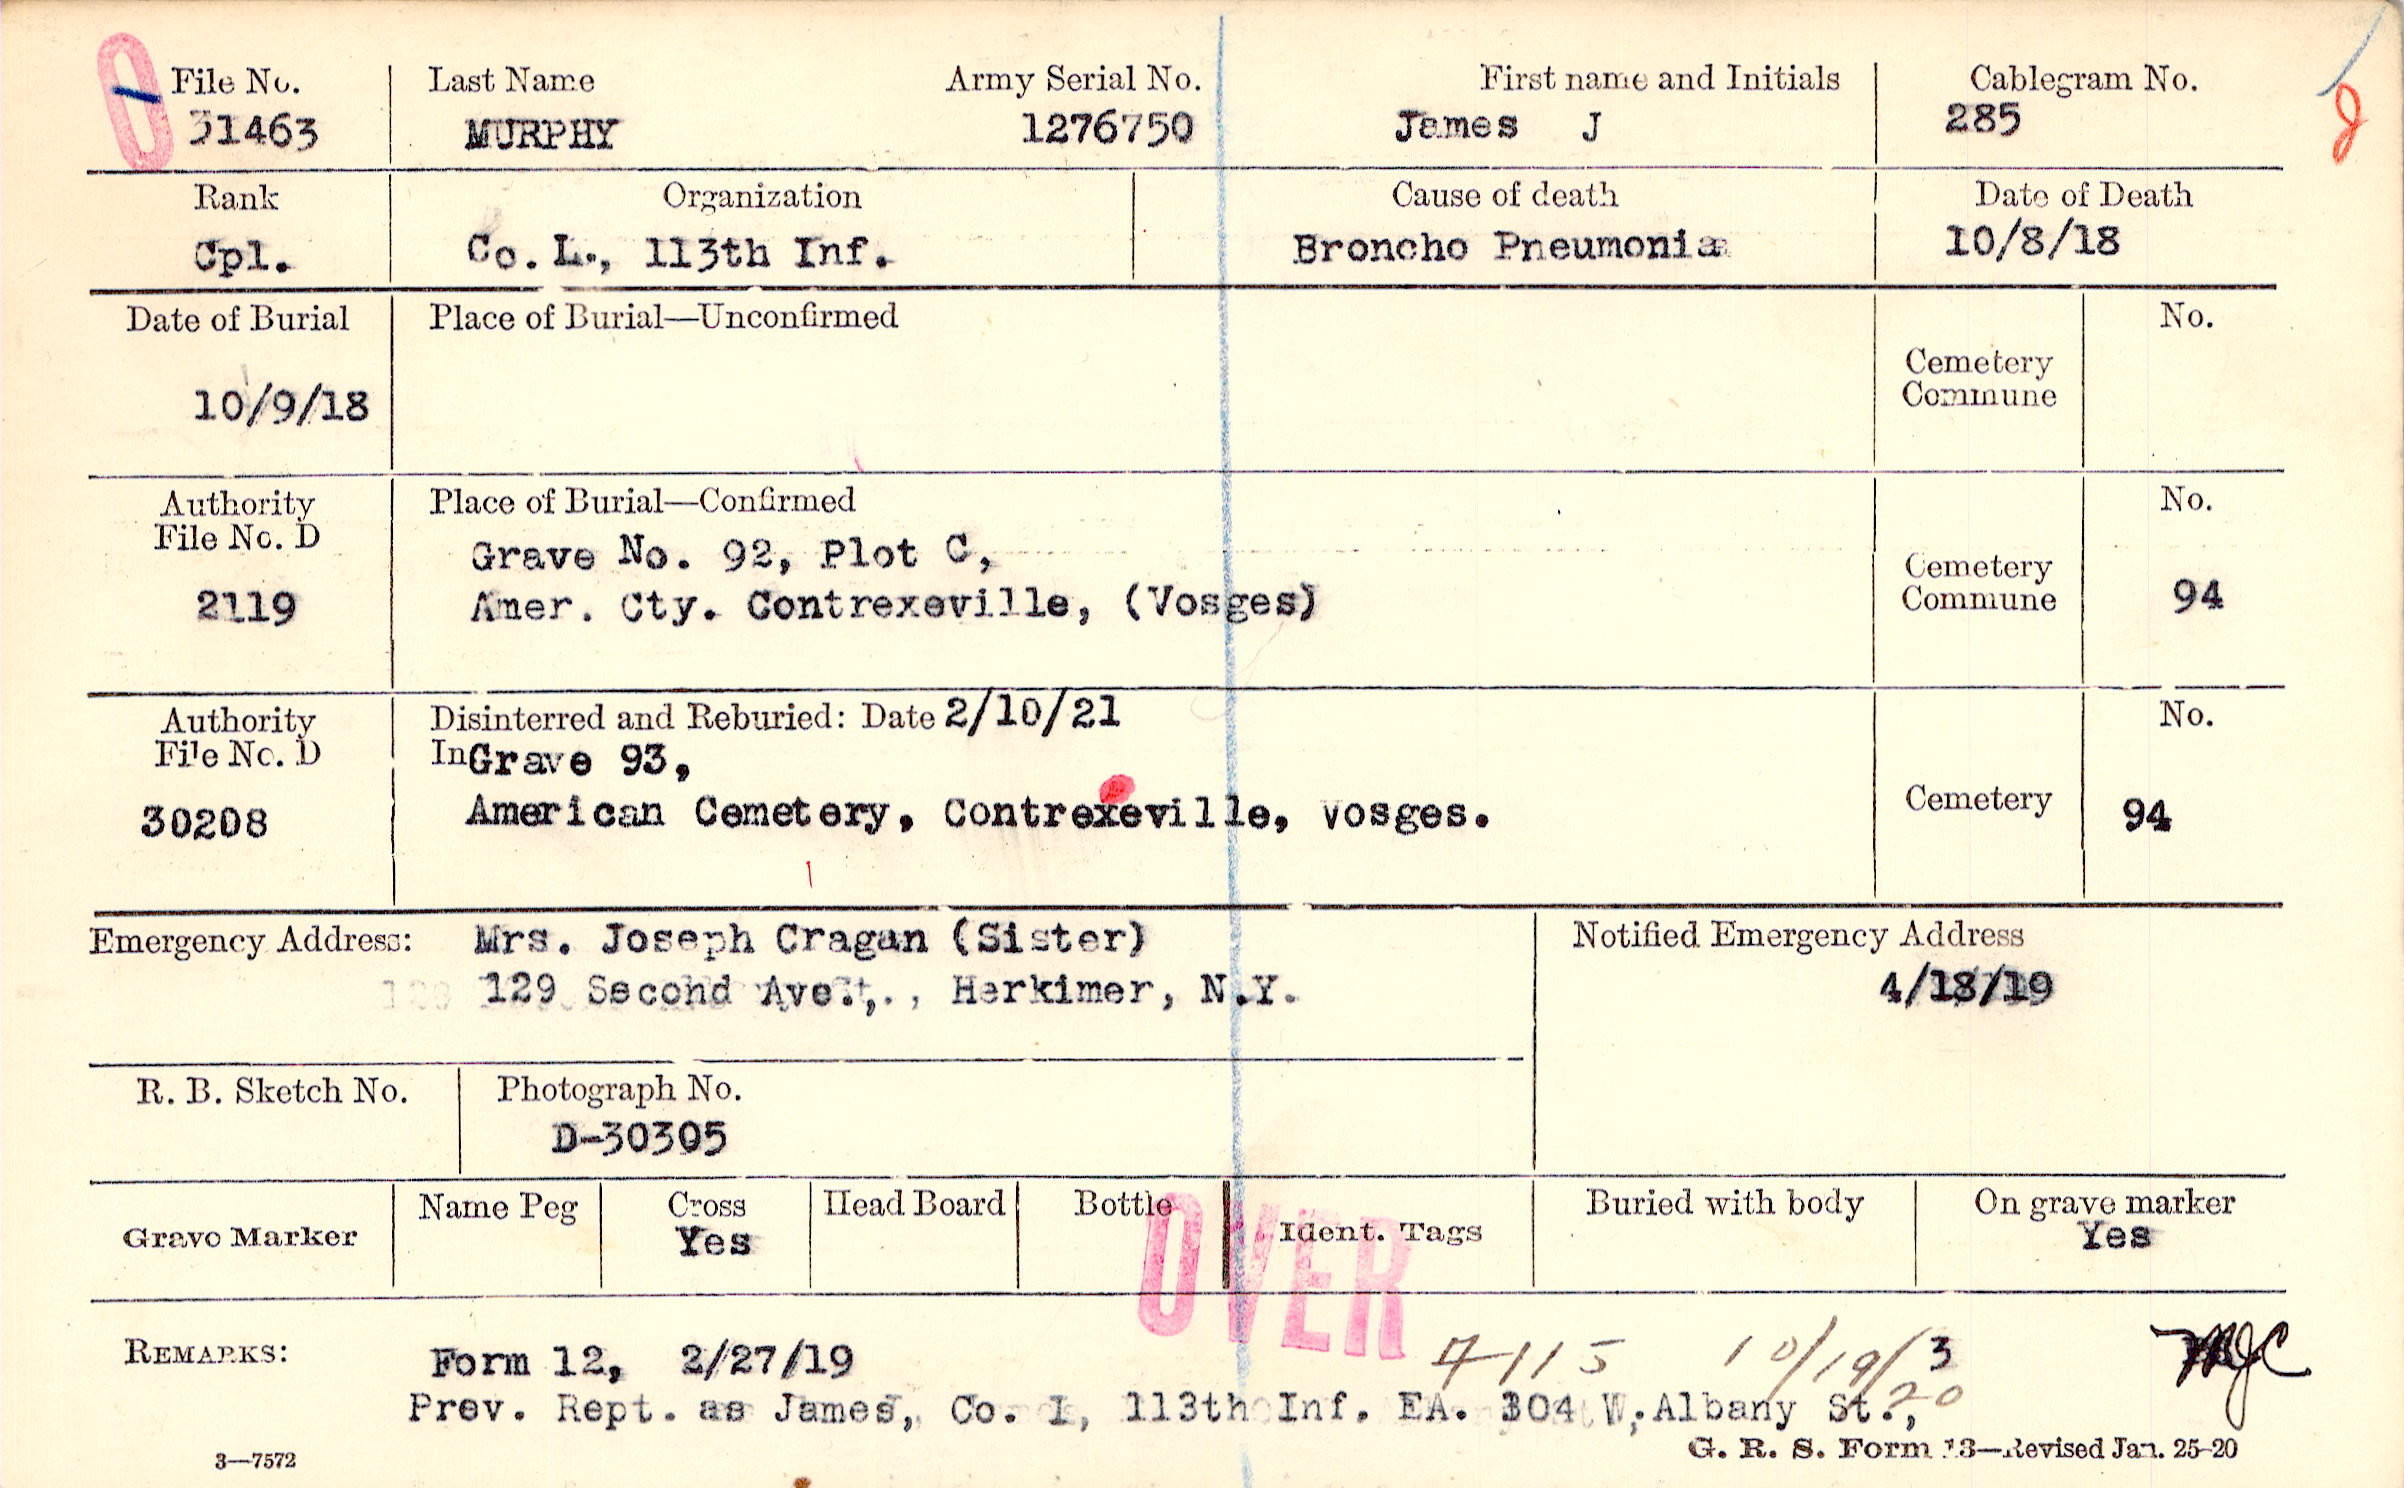 File No. Last Name Army Serial No. First name and Initials Cablegram No.
31463 MURPHY 1276750 James J 285
Rank Organization Cause of death Date of Death
Cpl. Co. L., 113th Inf. Broncho Pneumonia 10/8/18
Date of Burial Place of Burial—Unconfirmed No.
Cemetery
Commune
10/9/18
Authority Place of Burial—Confirmed No.
File No. D
Grave No. 92, Plot C,
Cemetery
2119 Amer. Cty. Contrexeville, (Vosges) Commune 94
Authority Disinterred and Reburied: Date 2/10/21 No.
File No. D In Grave 93,
30208 American Cemetery, Contrexeville, Vosges. Cemetery 94
Emergency Address: Mrs. Joseph Cragan (Sister) Notified Emergency Address
129 Second Ave., Herkimer, N.Y. 4/18/19
R. B. Sketch No. Photograph No.
D-30305
Grave Marker Name Peg Cross Head Board Bottle Ident. Tags Buried with body On grave marker
Yes Yes
OVER
REMARKS: Form 12, 2/27/19 7115 10/19/20 3 MJC
Prev. Rept. as James, Co. I, 113th Inf. EA. 304 W. Albany St.,
3—7572 G. R. S. Form 13—Revised Jan. 25-20